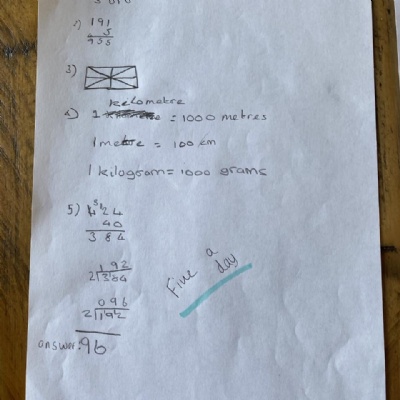 2) 191
5
955
3)
kelometre
4) 1 = 1000 metres
1 metre = 100 cm
1 kilogram = 1000 grams
5) 424
40
384
192
2 384
096
2 192
answer: 96
Five a day